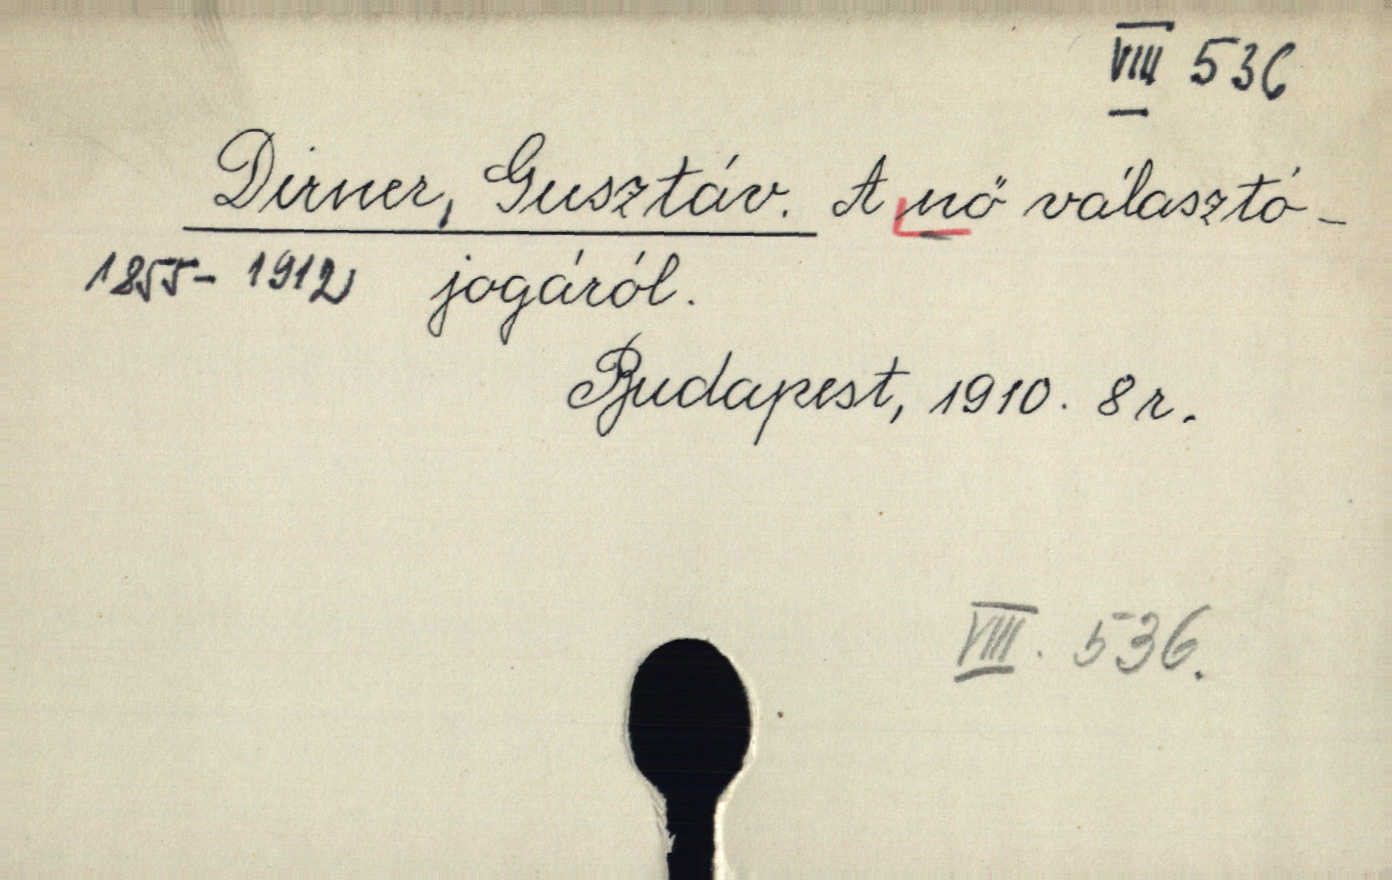 VIII 536
Dirner, Gusztáv. A nő választó-
1855-1912 jogáról.
Budapest, 1910. 8r.
VIII. 536.